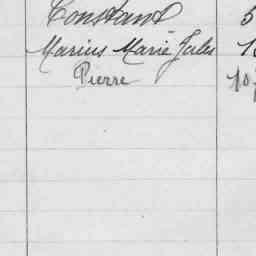 Constant 5
Marius Marie Jules 1
Pierre 10